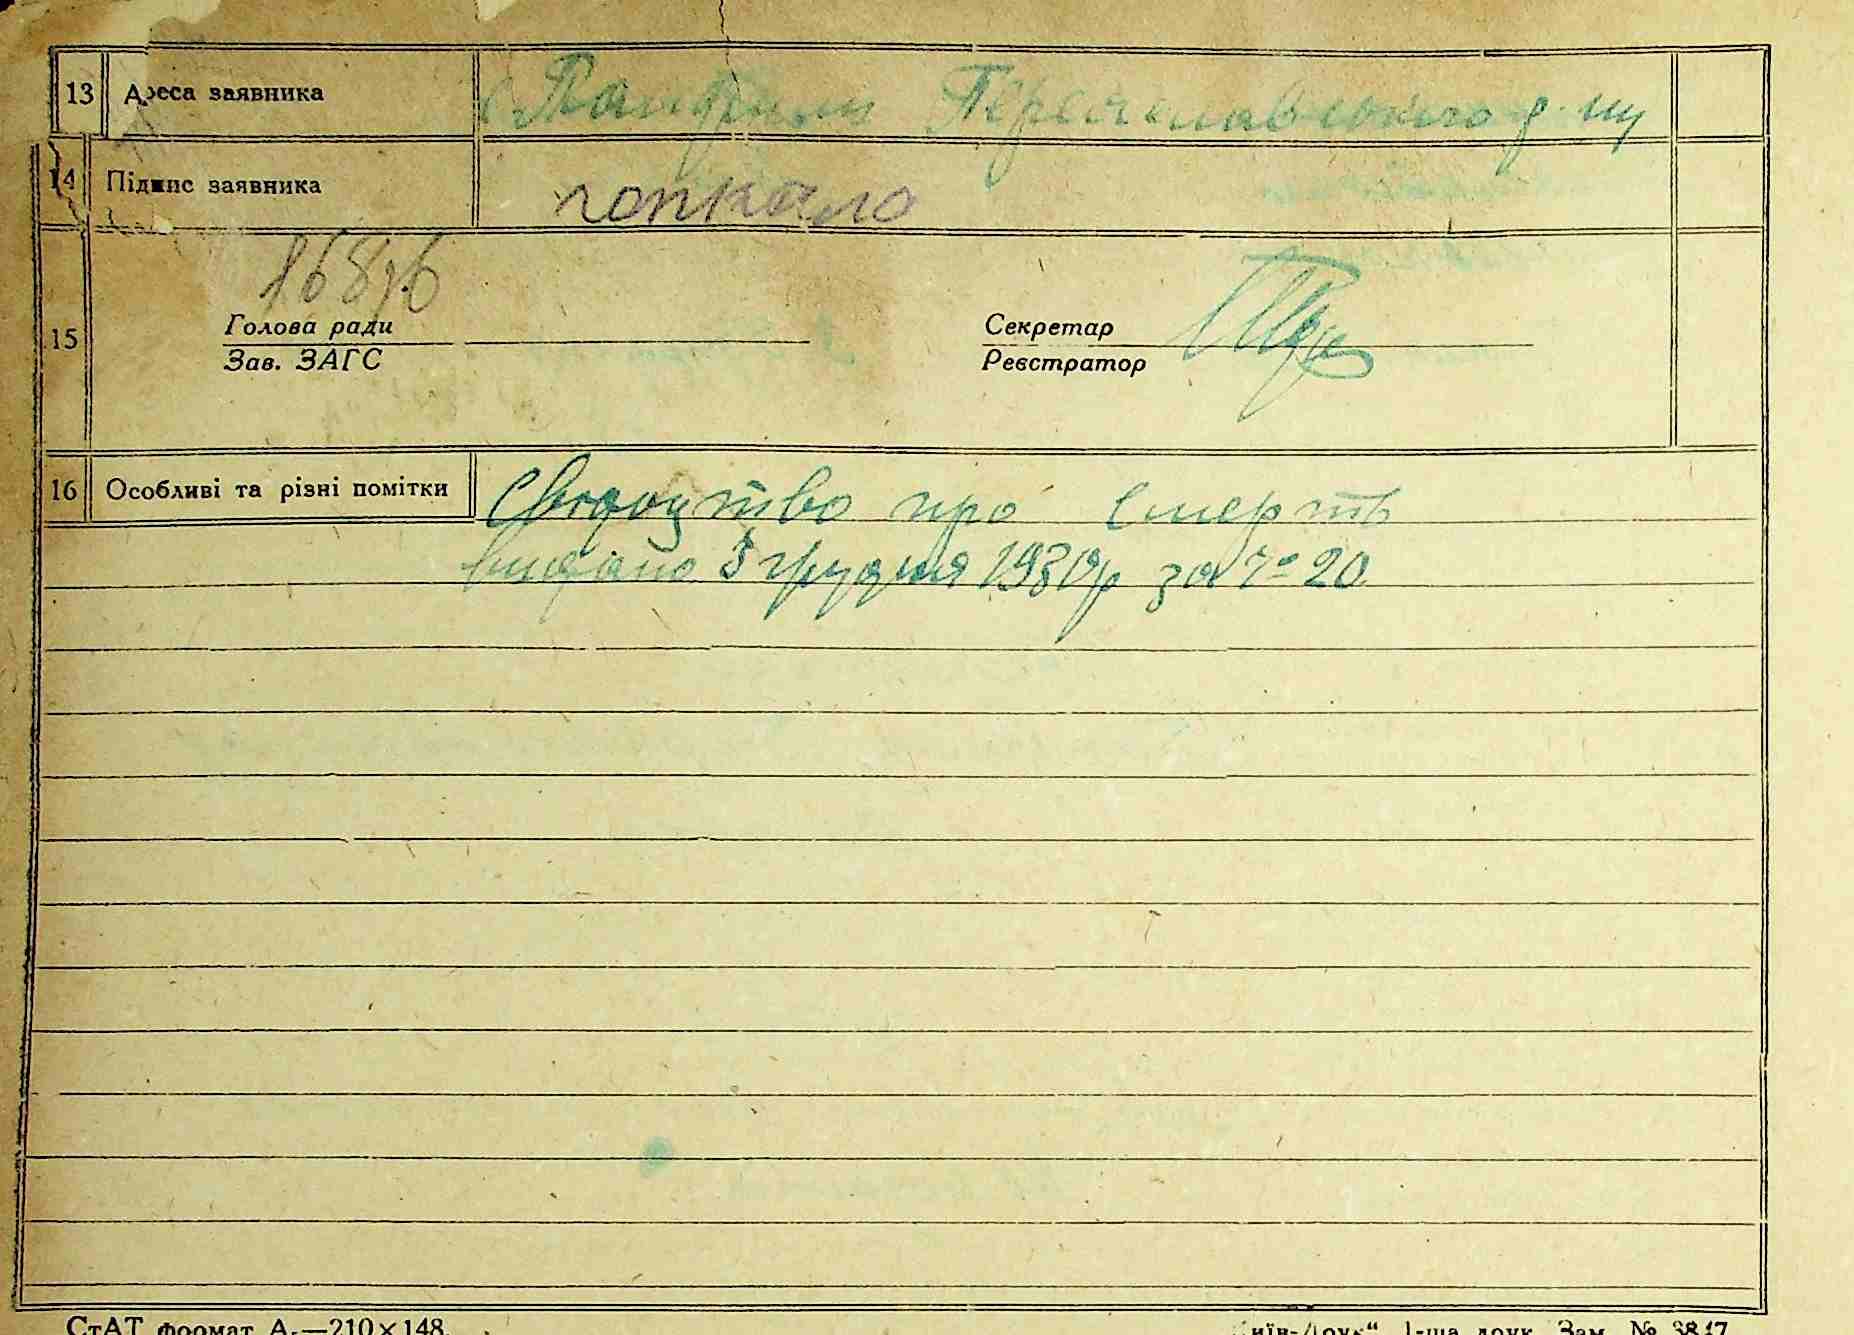 13 Адреса заявника с Панфили Переяславського р-ну
14 Підпис заявника гопкало
15
Голова ради
Зав. ЗАГС
Секретар
Реєстратор
16 Особливі та різні помітки Свідоцтво про смерть
видано 3 грудня 1930р за № 20
СтАТ формат А₅—210×148. Київ-Друк“ 1-ша друк. Зам. №